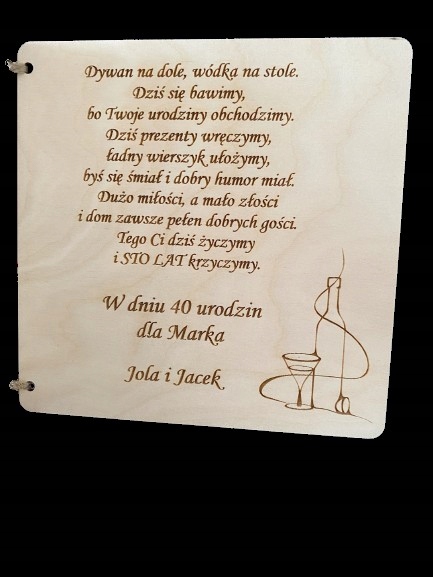 Dywan na dole, wódka na stole.
Dziś się bawimy,
bo Twoje urodziny obchodzimy.
Dziś prezenty wręczymy,
ładny wierszyk ułożymy,
byś się śmiał i dobry humor miał.
Dużo miłości, a mało złości
i dom zawsze pełen dobrych gości.
Tego Ci dziś życzymy
i STO LAT krzyczymy.
W dniu 40 urodzin
dla Marka
Jola i Jacek